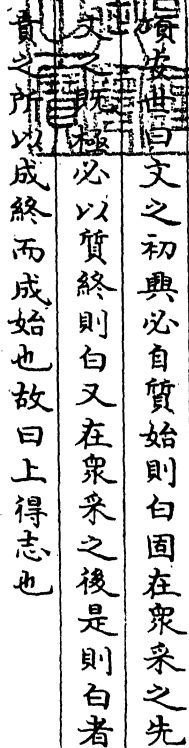 項安世曰文之初興必自質始則白固在衆采之先
文之既極必以質終則白又在衆采之後是則白者
賁之所以成終而成始也故曰上得志也